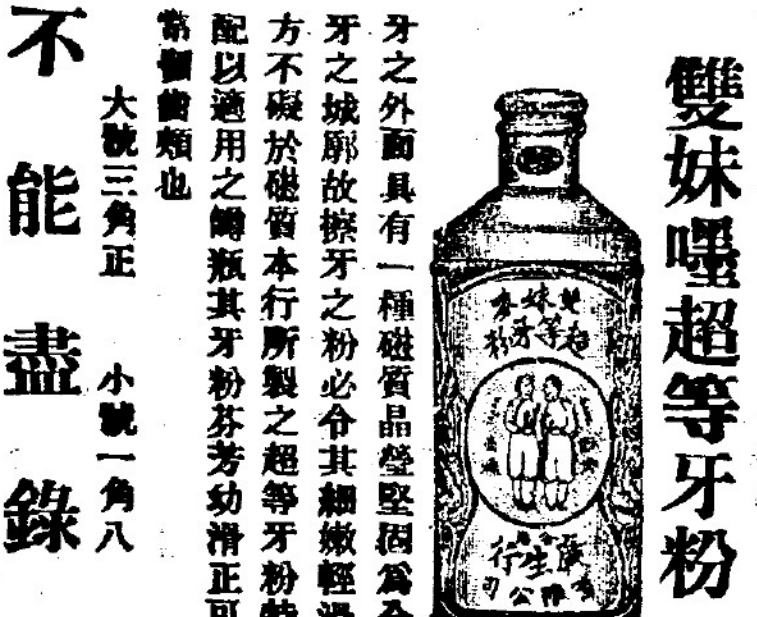 雙妹嚜超等牙粉
雙妹
超等牙粉
廣生行
有限公司
牙之外面具有一種磁質晶瑩堅固爲全
牙之城廓故擦牙之粉必令其細嫩輕滑
方不礙於磁質本行所製之超等牙粉特
配以適用之罇瓶其牙粉芬芳幼滑正可
常留齒頰也
大號三角正 小號一角八
不能盡錄